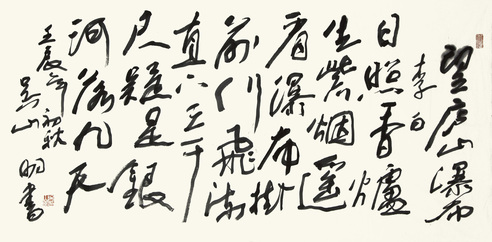 望庐山瀑布
李白
日照香爐
生紫烟遥
看瀑布掛
前川飛流
直下三千
尺疑是銀
河落九天
壬辰年初秋
吴山明書